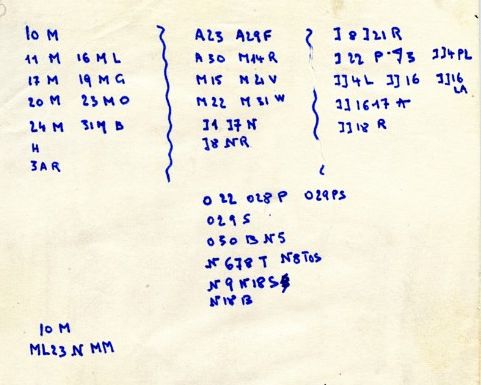 10 M
11 M 16 M L
17 M 19 M G
20 M 23 M O
24 M 31 M B
H
3 A R
A23 A29F
A 30 M14 R
M15 M21 V
M22 M31 W
J1 J7 N
J8 N R
J 8 J21 R
J 22 P JJ4PL
JJ4L JJ16 JJ16
LA
JJ1617 A
JJ18 R
O 22 O28 P O29PS
O29 S
O30 B N5
N 678 T N8TOS
N 9 N18S
N18 B
10 M
ML23 N MM